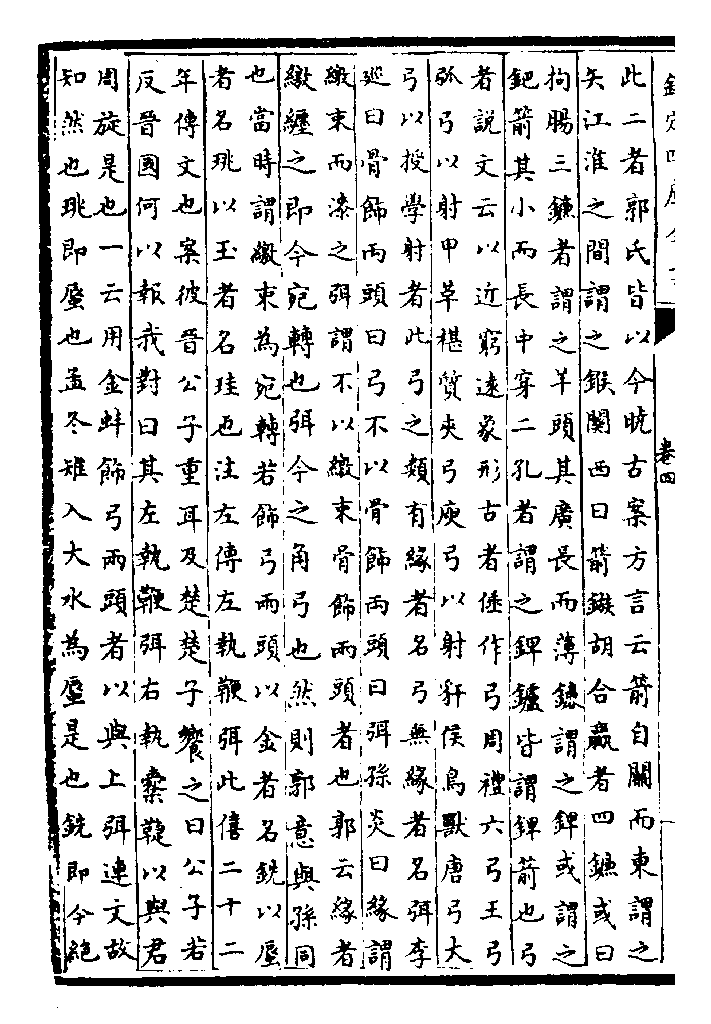 欽定四庫全書
卷四
此二者郭氏皆以今曉古案方言云箭自關而東謂之
矢江淮之間謂之鍭關西曰箭鏃胡合羸者四鐮或曰
拘腸三鐮者謂之羊頭其廣長而薄鐮謂之錍或謂之
鈀箭其小而長中穿二孔者謂之錍鑪皆謂錍箭也弓
者說文云以近窮遠象形古者倕作弓周禮六弓王弓
弧弓以射甲革椹質夾弓庾弓以射豻侯鳥獸唐弓大
弓以授學射者此弓之類有緣者名弓無緣者名弭李
巡曰骨飾兩頭曰弓不以骨飾兩頭曰弭孫炎曰緣謂
繳束而漆之弭謂不以繳束骨飾兩頭者也郭云緣者
繳纏之即今宛轉也弭今之角弓也然則郭意與孫同
也當時謂繳束為宛轉若飾弓兩頭以金者名銑以蜃
者名珧以玉者名珪也注左傳左執鞭弭此僖二十二
年傳文也案彼晉公子重耳及楚楚子饗之曰公子若
反晉國何以報我對曰其左執鞭弭右執櫜鞬以與君
周旋是也一云用金蚌飾弓兩頭者以與上弭連文故
知然也珧即蜃也孟冬雉入大水為蜃是也銑即今絕